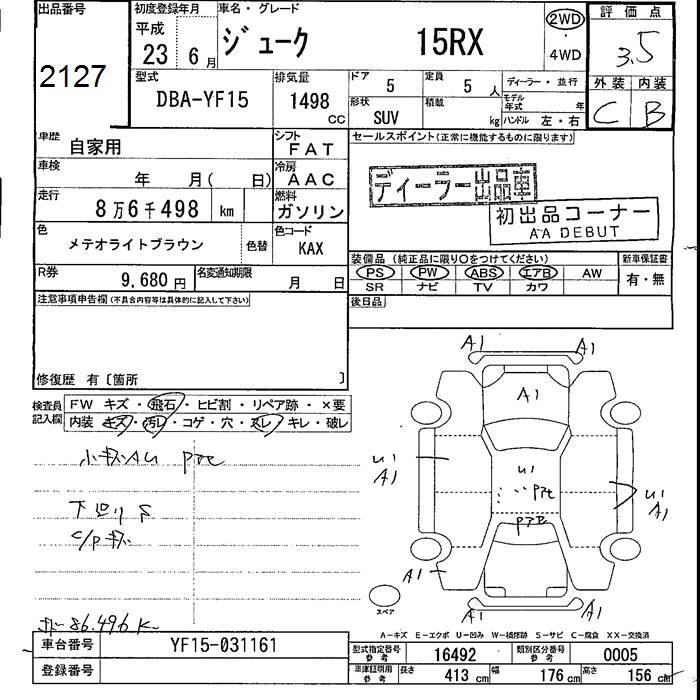 出品番号
2127
初度登録年月
平成
23 6月
車名・グレード
ジューク 15RX
2WD
4WD
評価点
3.5
外装 内装
C B
型式
DBA-YF15
排気量
1498
CC
ドア
5
定員
5 人
形状
SUV
積載
kg
ディーラー・並行
モデル
年式
年
ハンドル 左・右
車歴
自家用
シフト
FAT
車検
年 月( 日)
冷房
AAC
走行
8万6千498 km
燃料
ガソリン
色
メテオライトブラウン
色替
色コード
KAX
R券
9,680円
名変通知期限
月 日
セールスポイント(正常に機能するものに限ります)
ディーラー出品車
初出品コーナー
AA DEBUT
装備品(純正品に限り○をつけてください)
PS PW ABS エアB AW
SR ナビ TV カワ
新車保証書
有・無
後日品
注意事項申告欄(不具合内容等は具体的に記入して下さい)
修復歴 有〔箇所 〕
検査員
記入欄
FW キズ・飛石・ヒビ割・リペア跡・×要
内装 キズ・汚レ・コゲ・穴・スレ・キレ・破レ
小キズAU
下廻りS
C/Pキズ
86,496K
A1 A1
A1
U1
A1
U1
U1
A1
A1
A1 A1
スペア
A－キズ E－エクボ U－凹み W－補修跡 S－サビ C－腐食 XX－交換済
車台番号
YF15-031161
登録番号
型式指定番号
参考
16492
類別区分番号
参考
0005
車庫証明用
参考
長さ
413 cm
幅
176 cm
高さ
156 cm